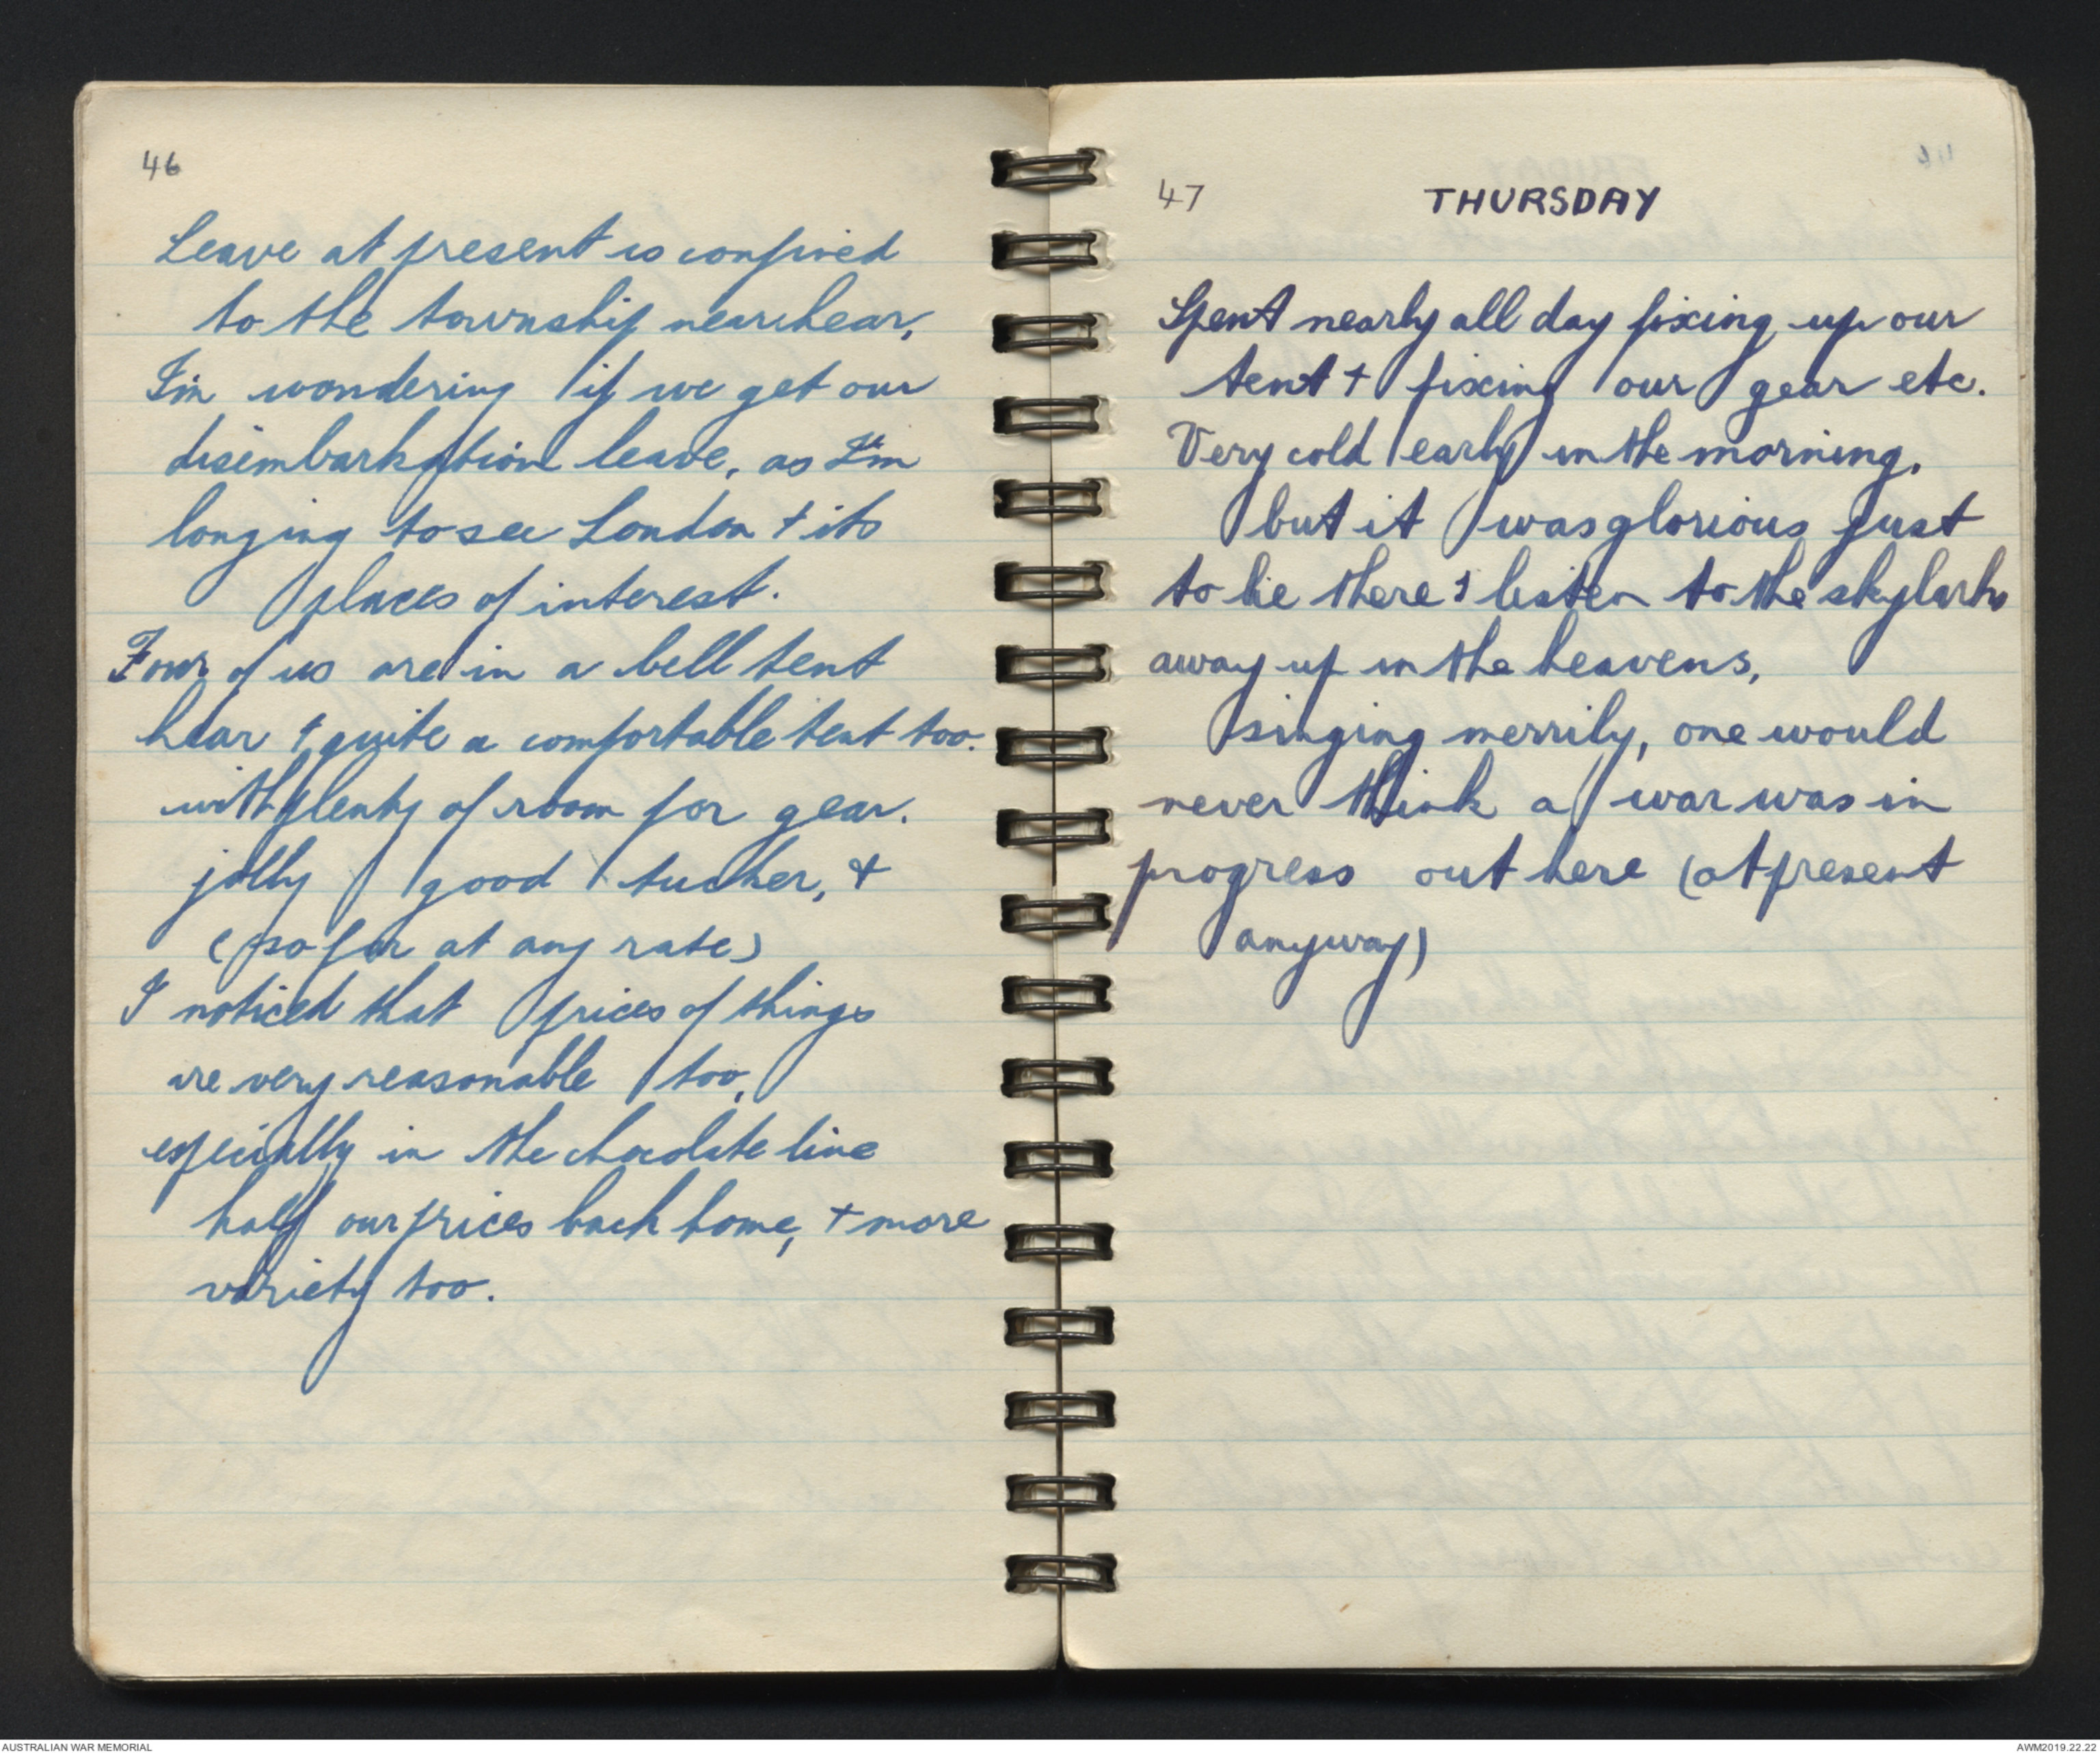 46
Leave at present is confined
to the township near hear,
I'm wondering if we get our
disembarkation leave, as I'm
longing to see London + its
places of interest.
Four of us are in a bell tent
hear + quite a comfortable tent too.
with plenty of room for gear.
jolly good tucker, +
(so far at any rate)
I noticed that prices of things
are very reasonable too,
especially in the chocolate line
half our prices back home, + more
variety too.
47 THURSDAY
Spent nearly all day fixing up our
tent + fixing our gear etc.
Very cold early in the morning,
but it was glorious just
to lie there + listen to the skylarks
away up in the heavens,
singing merrily, one would
never think a war was in
progress out here (at present
anyway)
AUSTRALIAN WAR MEMORIAL
AWM2019.22.22